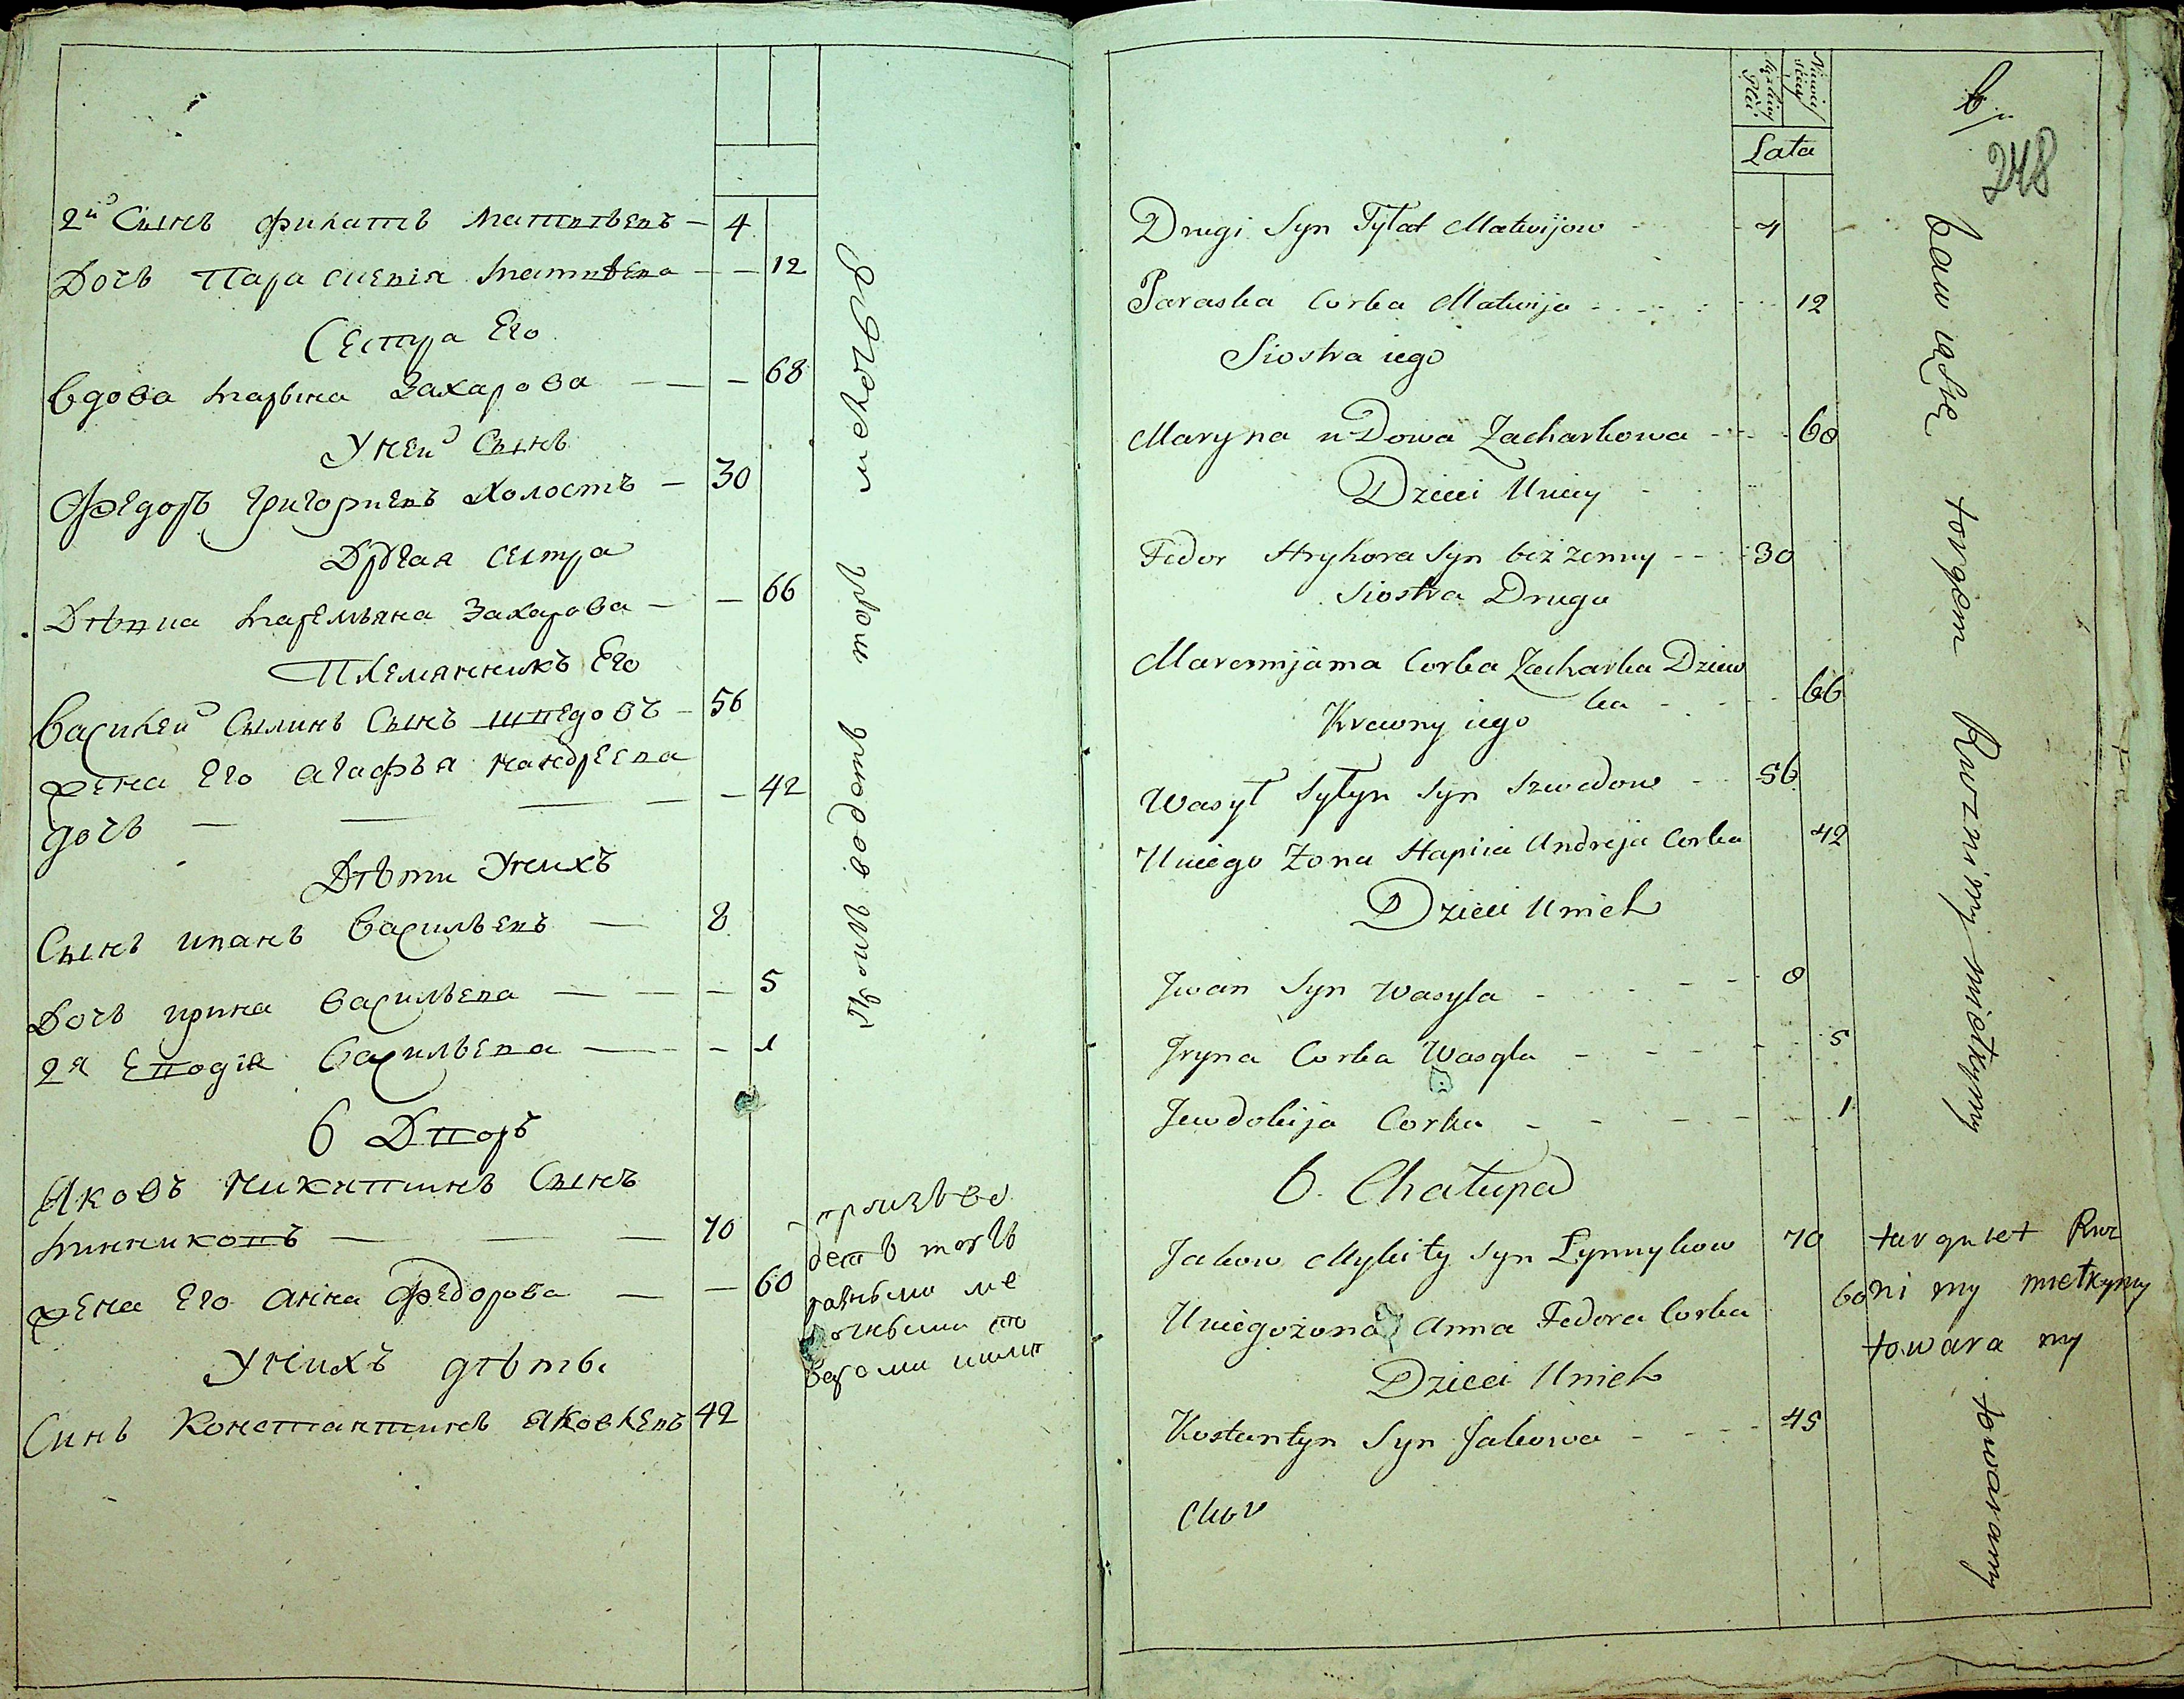 2й Сынъ Филатъ Матвѣевъ — 4
Дочъ Парасцевія Матвѣева — — 12
Сестра Его
Вдова Марына Захарова — — — 68
У ней Сынъ
Федоръ Григориевъ Холостъ — 30
Другая сестра
Дѣвица Маремьяна Захарова — — 66
Племянникъ Его
Василей Сылинъ Сынъ Шведовъ — 56
Жена Его Агафья Нандреева
дочъ — — — — — 42
Дѣти У нихъ
Сынъ Иванъ Васильевъ — 8
Дочъ Ирина Васильева — — — 5
2я Еводія Васильева — — — 1
6 Дворъ
Яковъ Никитинъ Сынъ
Линниковъ — — — 70
Жена Его Анна Федорова — — 60
У нихъ дѣты
Синъ Константинъ Яковлевъ 42
Производитъ торг мелочью
производетъ торгъ разными мелочными товарами
Lata
6
248
Drugi Syn Fyłat Matwijow 4
Paraska Corka Matwija 12
Siostra iego
Maryna wDowa Zacharkowa 68
Dzieci Uniey
Fedor Hryhora Syn bez zenny 30
Siostra Druga
Maremijama Corka Zacharka Dziew
ka 66
Krewny iego
Wasyl Sylyn Syn Szwedow 56
Uniego Zona Hapiia Andreja Corka 42
Dzieci Unich
Jwan Syn Wasyla 8
Jryna Corka Wasyla 5
Jewdokija Corka 1
6. Chałupa
Jakow Mykity Syn Lynnykow 70
Uniego żona Anna Fedora Corka 60
Dzieci Unich
Kostantyn Syn Jakowa 45
bawiącyie torgem Rwznimy miełkymy towaramy
targuiet Rwz
ni my miełkymy
towara my